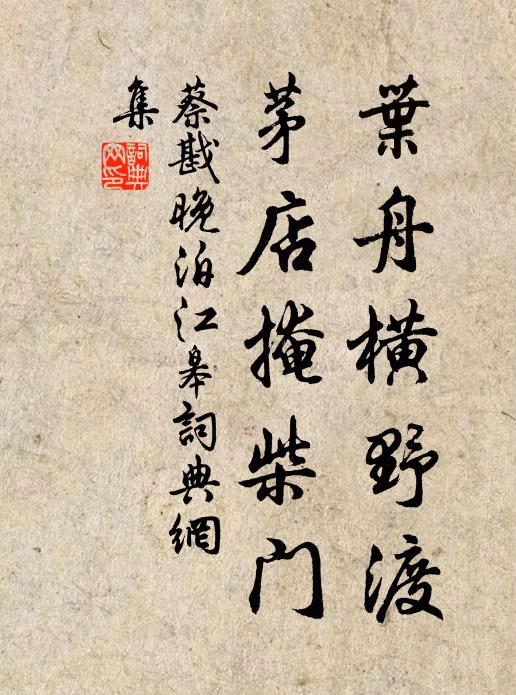 葉舟橫野渡
茅店掩柴門
蔡戡晚泊江皋詞典網
集
詞典
网印